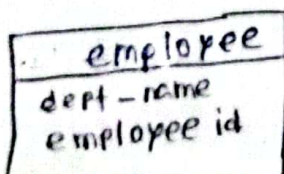 employee
dept-name
employee id